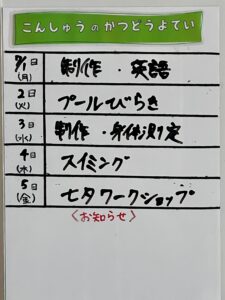 こんしゅうのかつどうよてい
7/1日(月) 制作・英語
2日(火) プールびらき
3日(水) 制作・身体測定
4日(木) スイミング
5日(金) 七夕ワークショップ
〈お知らせ〉